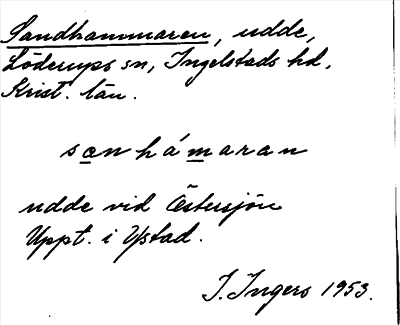 Sandhammaren, udde,
Löderups sn, Ingelstads hd,
Krist. län.
sanhámaran
udde vid Östersjön
Uppt. i Ystad.
I. Ingers 1953.